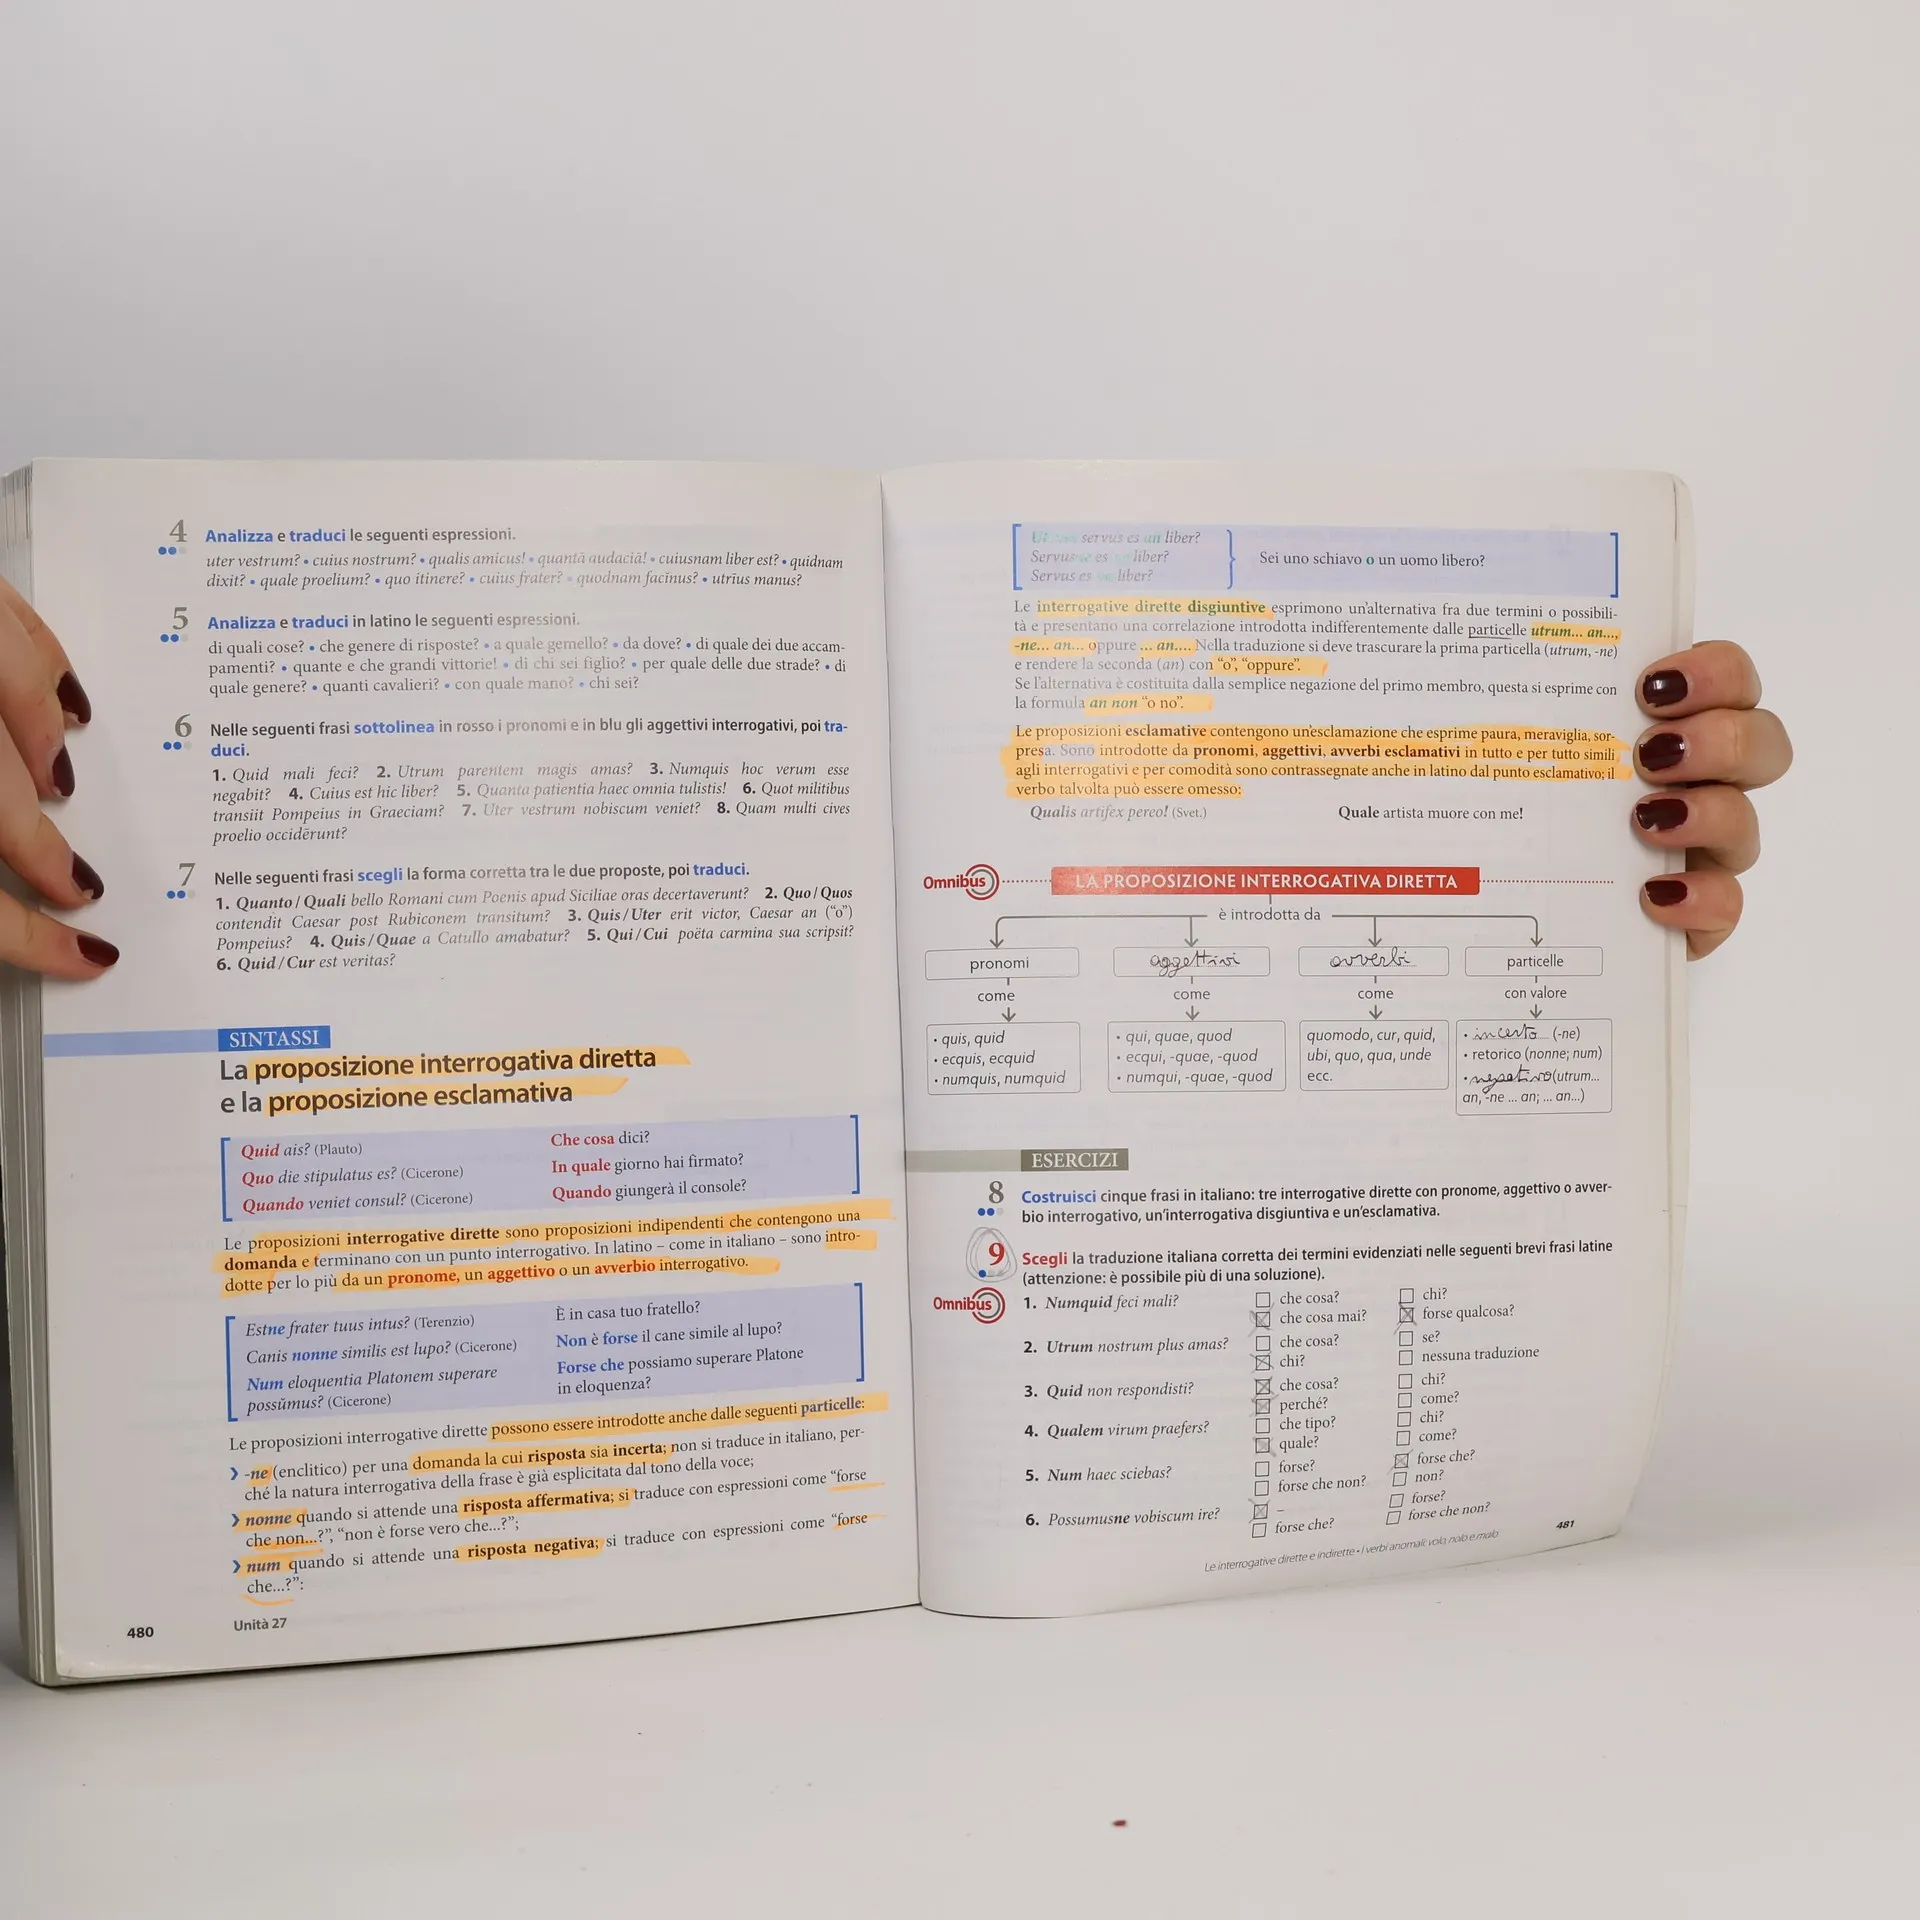 4 Analizza e traduci le seguenti espressioni.
uter vestrum? • cuius nostrum? • qualis amicus! • quantā audaciā! • cuiusnam liber est? • quidnam
dixit? • quale proelium? • quo itinere? • cuius frater? • quodnam facinus? • utrīus manus?
5 Analizza e traduci in latino le seguenti espressioni.
di quali cose? • che genere di risposte? • a quale gemello? • da dove? • di quale dei due accam-
pamenti? • quante e che grandi vittorie! • di chi sei figlio? • per quale delle due strade? • di
quale genere? • quanti cavalieri? • con quale mano? • chi sei?
6 Nelle seguenti frasi sottolinea in rosso i pronomi e in blu gli aggettivi interrogativi, poi tra-
duci.
1. Quid mali feci? 2. Utrum parentem magis amas? 3. Numquis hoc verum esse
negabit? 4. Cuius est hic liber? 5. Quanta patientia haec omnia tulistis! 6. Quot militibus
transiit Pompeius in Graeciam? 7. Uter vestrum nobiscum veniet? 8. Quam multi cives
proelio occidērunt?
7 Nelle seguenti frasi scegli la forma corretta tra le due proposte, poi traduci.
1. Quanto / Quali bello Romani cum Poenis apud Siciliae oras decertaverunt? 2. Quo / Quos
contendit Caesar post Rubiconem transitum? 3. Quis / Uter erit victor, Caesar an ("o")
Pompeius? 4. Quis / Quae a Catullo amabatur? 5. Qui / Cui poëta carmina sua scripsit?
6. Quid / Cur est veritas?
SINTASSI
La proposizione interrogativa diretta
e la proposizione esclamativa
Quid ais? (Plauto) Che cosa dici?
Quo die stipulatus es? (Cicerone) In quale giorno hai firmato?
Quando veniet consul? (Cicerone) Quando giungerà il console?
Le proposizioni interrogative dirette sono proposizioni indipendenti che contengono una
domanda e terminano con un punto interrogativo. In latino – come in italiano – sono intro-
dotte per lo più da un pronome, un aggettivo o un avverbio interrogativo.
Estne frater tuus intus? (Terenzio) È in casa tuo fratello?
Canis nonne similis est lupo? (Cicerone) Non è forse il cane simile al lupo?
Num eloquentia Platonem superare Forse che possiamo superare Platone
possŭmus? (Cicerone) in eloquenza?
Le proposizioni interrogative dirette possono essere introdotte anche dalle seguenti particelle:
› -ne (enclitico) per una domanda la cui risposta sia incerta; non si traduce in italiano, per-
ché la natura interrogativa della frase è già esplicitata dal tono della voce;
› nonne quando si attende una risposta affermativa; si traduce con espressioni come "forse
che non...?", "non è forse vero che...?";
› num quando si attende una risposta negativa; si traduce con espressioni come "forse
che...?":
480 Unità 27
servus es an liber?
Servus es liber?
Servus es liber?
Sei uno schiavo o un uomo libero?
Le interrogative dirette disgiuntive esprimono un'alternativa fra due termini o possibili-
tà e presentano una correlazione introdotta indifferentemente dalle particelle utrum... an...,
-ne... an... oppure ... an.... Nella traduzione si deve trascurare la prima particella (utrum, -ne)
e rendere la seconda (an) con "o", "oppure".
Se l'alternativa è costituita dalla semplice negazione del primo membro, questa si esprime con
la formula an non "o no".
Le proposizioni esclamative contengono un'esclamazione che esprime paura, meraviglia, sor-
presa. Sono introdotte da pronomi, aggettivi, avverbi esclamativi in tutto e per tutto simili
agli interrogativi e per comodità sono contrassegnate anche in latino dal punto esclamativo; il
verbo talvolta può essere omesso:
Qualis artifex pereo! (Svet.) Quale artista muore con me!
Omnibus LA PROPOSIZIONE INTERROGATIVA DIRETTA
è introdotta da
pronomi aggettivi avverbi particelle
come come come con valore
• quis, quid
• ecquis, ecquid
• numquis, numquid
• qui, quae, quod
• ecqui, -quae, -quod
• numqui, -quae, -quod
quomodo, cur, quid,
ubi, quo, qua, unde
ecc.
• incerto (-ne)
• retorico (nonne; num)
• (utrum...
an, -ne ... an; ... an...)
ESERCIZI
8 Costruisci cinque frasi in italiano: tre interrogative dirette con pronome, aggettivo o avver-
bio interrogativo, un'interrogativa disgiuntiva e un'esclamativa.
9 Scegli la traduzione italiana corretta dei termini evidenziati nelle seguenti brevi frasi latine
(attenzione: è possibile più di una soluzione).
Omnibus
1. Numquid feci mali? che cosa? chi?
che cosa mai? forse qualcosa?
2. Utrum nostrum plus amas? che cosa? se?
chi? nessuna traduzione
3. Quid non respondisti? che cosa? chi?
perché? come?
4. Qualem virum praefers? che tipo? chi?
quale? come?
5. Num haec sciebas? forse? forse che?
forse che non? non?
6. Possumusne vobiscum ire? – forse?
forse che? forse che non?
Le interrogative dirette e indirette • I verbi anomali: volo, nolo e malo 481